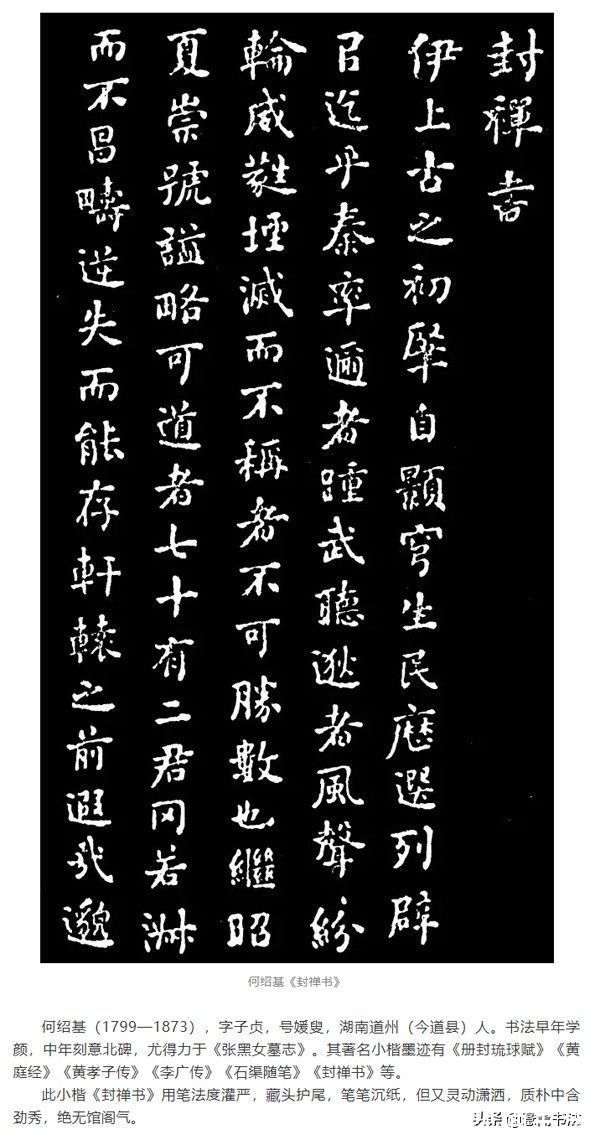 封禪書
伊上古之初肈自顥穹生民歷選列辟
㠯迄乎秦率邇者踵武聽逖者風聲紛
輪威蕤堙滅而不稱者不可勝數也繼昭
夏崇號謚略可道者七十有二君罔若淑
而不昌疇逆失而能存軒轅之前遐哉邈
何绍基《封禅书》
何绍基（1799—1873），字子贞，号媛叟，湖南道州（今道县）人。书法早年学
颜，中年刻意北碑，尤得力于《张黑女墓志》。其著名小楷墨迹有《册封琉球赋》《黄
庭经》《黄孝子传》《李广传》《石渠随笔》《封禅书》等。
此小楷《封禅书》用笔法度灌严，藏头护尾，笔笔沉纸，但又灵动潇洒，质朴中含
劲秀，绝无馆阁气。
头条 书法